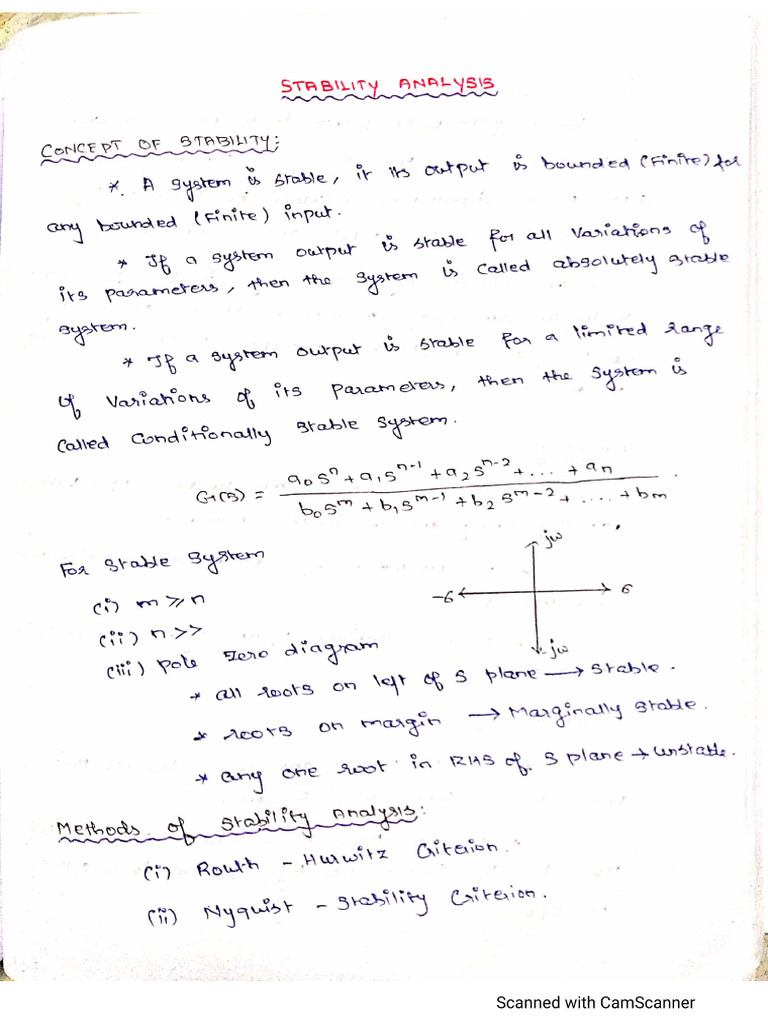 STABILITY ANALYSIS
CONCEPT OF STABILITY:
* A system is stable, if its output is bounded (Finite) for
any bounded (Finite) input.
* If a system output is stable for all variations of
its parameters, then the system is called absolutely stable
system.
* If a system output is stable for a limited range
of variations of its parameters, then the system is
called conditionally stable system.
G(s) = a₀sⁿ + a₁sⁿ⁻¹ + a₂sⁿ⁻² + ... + aₙ / b₀sᵐ + b₁sᵐ⁻¹ + b₂sᵐ⁻² + .... + bₘ
For stable system
jω
(i) m ≥ n
-σ σ
(ii) n >>
-jω
(iii) Pole Zero diagram
* all roots on left of S plane → stable.
* roots on margin → Marginally stable.
* any one root in RHS of S plane → unstable.
Methods of Stability Analysis:
(i) Routh - Hurwitz Criterion.
(ii) Nyquist - Stability Criterion.
Scanned with CamScanner